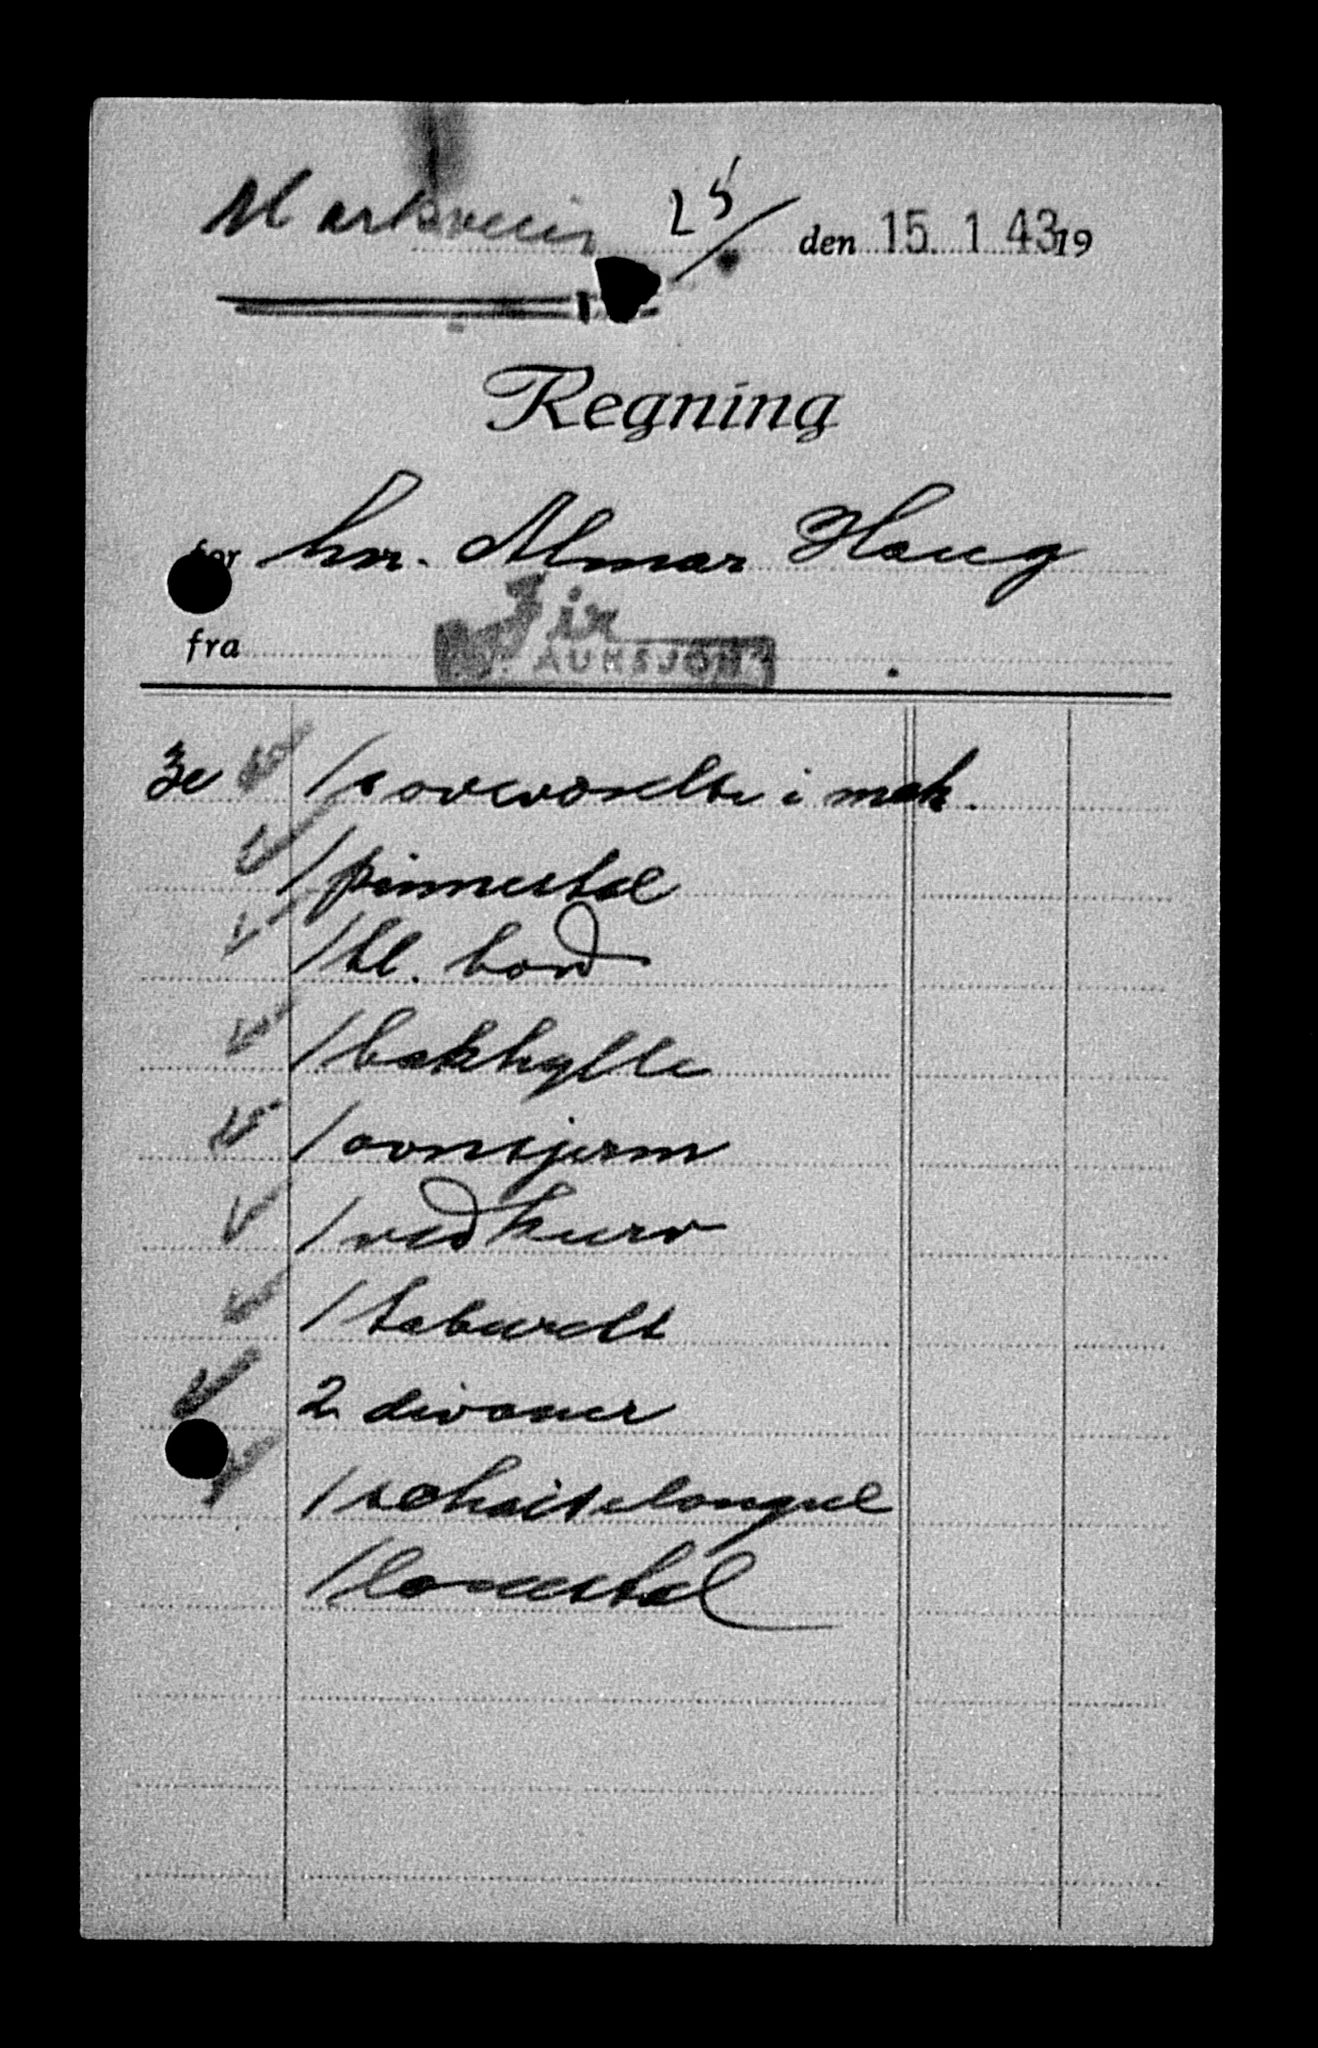 Markveien 25/ den 15. 1 43 19
Regning
for hr. Almar Haug
fra Fir
AUKSJON
3e 1 soveværelse i mah.
1 pinnestol
1 kl. bord
1 bokhylle
1 ovnsjerm
1 vedkurv
1 taburett
2 divaner
1 schaiselongue
1 lænestol